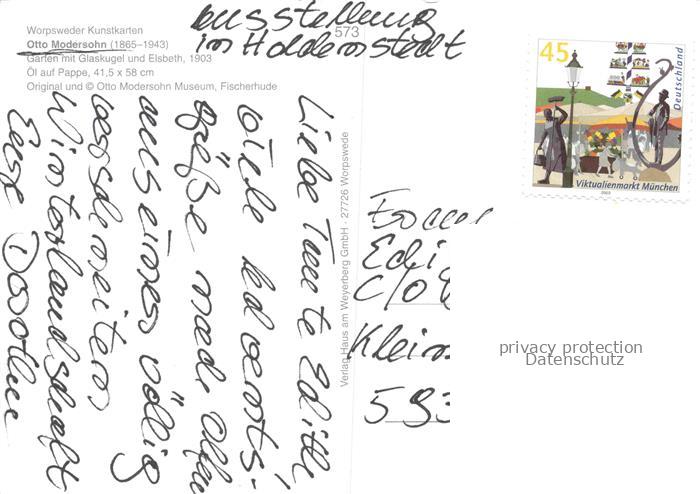 Worpsweder Kunstkarten
Otto Modersohn (1865–1943)
Garten mit Glaskugel und Elsbeth, 1903
Öl auf Pappe, 41,5 x 58 cm
Original und © Otto Modersohn Museum, Fischerhude
573
Ausstellung
in Holdenstedt
Liebe Tante Edith,
viele
Grüße nach
aus einer völlig
verschneiten
Winterlandschaft
Eure Dorothee
Verlag Haus am Weyerberg GmbH · 27726 Worpswede
Frau
Edi
C/o
Klein
593
45
Deutschland
Viktualienmarkt München
2003
privacy protection
Datenschutz